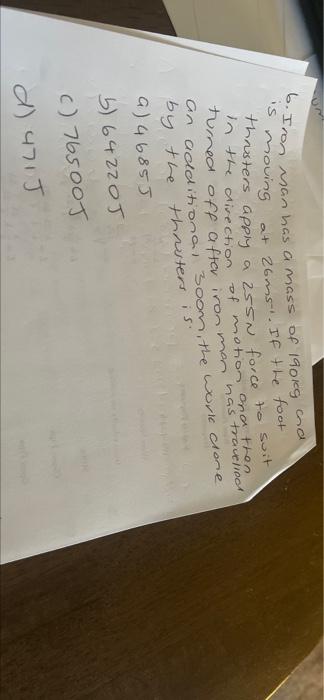 6. Iron Man has a mass of 190kg and
is moving at 26ms⁻¹. If the foot
thrusters apply a 255N force to suit
in the direction of motion and then
turned off after iron man has travelled
an additional 300m, the work done
by the thrusters is.
a) 4685J
b) 64220J
c) 76500J
d) 471J